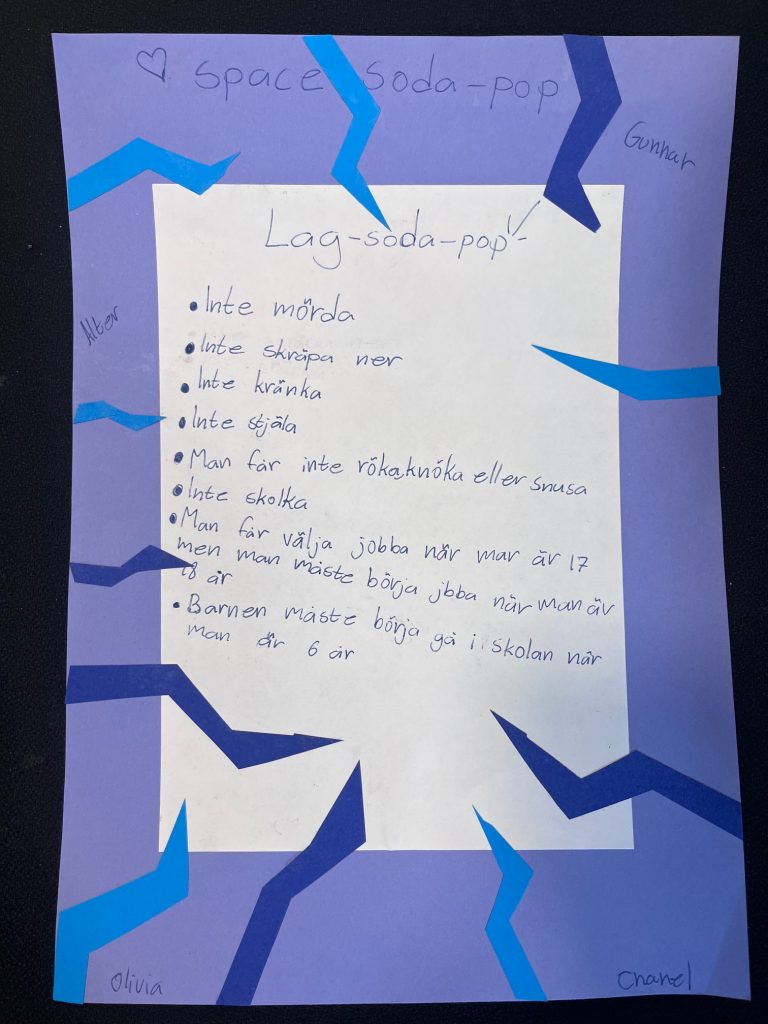 ♡ space soda-pop
Gunnar
Lag-soda-pop
Alter
• Inte mörda
• Inte skräpa ner
• Inte kränka
• Inte stjäla
• Man får inte röka, knöka eller snusa
• Inte skolka
• Man får välja jobba när man är 17
men man måste börja jbba när man är
18 år
• Barnen måste börja gå i skolan när
man är 6 år
Olivia
Chanel